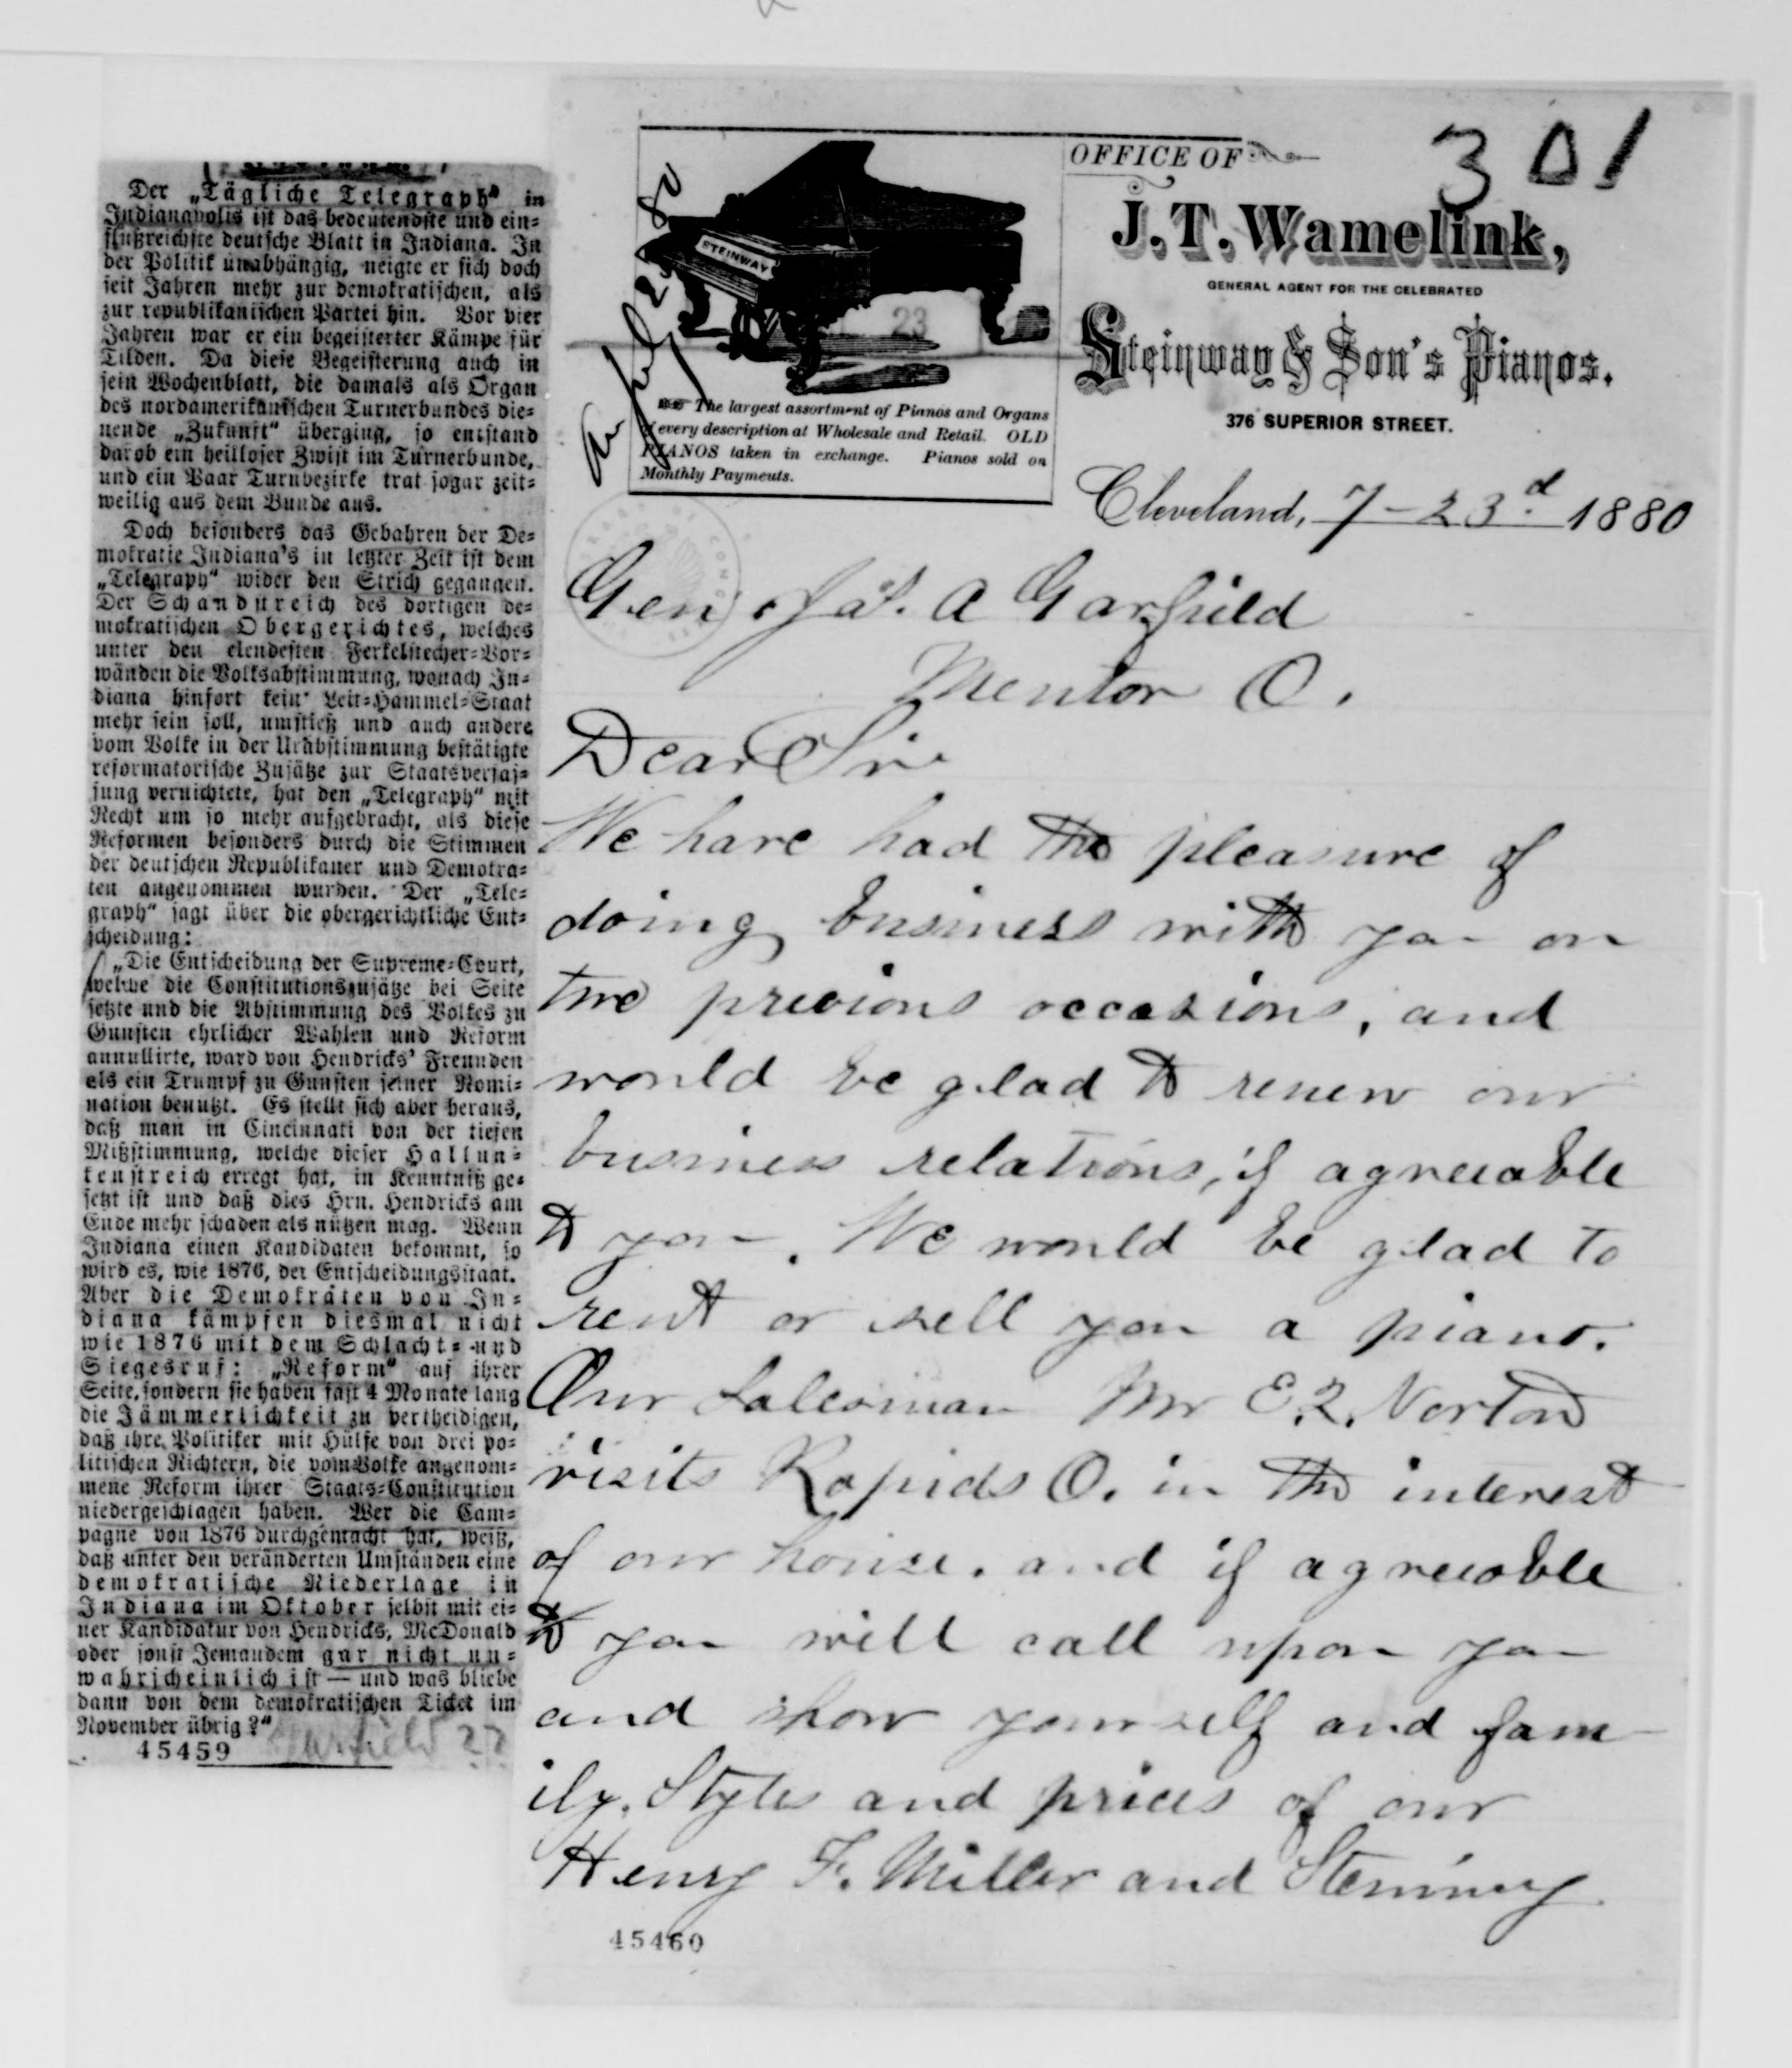 Der „Tägliche Telegraph“ in
Indianapolis ist das bedeutendste und ein-
flußreichste deutsche Blatt in Indiana. In
der Politik unabhängig, neigte er sich doch
seit Jahren mehr zur demokratischen, als
zur republikanischen Partei hin. Vor vier
Jahren war er ein begeisterter Kämpe für
Tilden. Da diese Begeisterung auch in
sein Wochenblatt, die damals als Organ
des nordamerikanischen Turnerbundes die-
nende „Zukunft“ überging, so entstand
darob ein heilloser Zwist im Turnerbunde,
und ein Paar Turnbezirke trat sogar zeit-
weilig aus dem Bunde aus.
Doch besonders das Gebahren der De-
mokratie Indiana's in letzter Zeit ist dem
„Telegraph“ wider den Strich gegangen.
Der Schandstreich des dortigen de-
mokratischen Obergerichtes, welches
unter den elendesten Ferkelstecher-Vor-
wänden die Volksabstimmung, wonach In-
diana hinfort kein Leit-Hammel-Staat
mehr sein soll, umstieß und auch andere
vom Volke in der Urabstimmung bestätigte
reformatorische Zusätze zur Staatsverfas-
sung vernichtete, hat den „Telegraph“ mit
Recht um so mehr aufgebracht, als diese
Reformen besonders durch die Stimmen
der deutschen Republikaner und Demokra-
ten angenommen wurden. Der „Tele-
graph“ sagt über die obergerichtliche Ent-
scheidung:
„Die Entscheidung der Supreme-Court,
welche die Constitutionszusätze bei Seite
setzte und die Abstimmung des Volkes zu
Gunsten ehrlicher Wahlen und Reform
annullirte, ward von Hendricks' Freunden
als ein Trumpf zu Gunsten seiner Nomi-
nation benutzt. Es stellt sich aber heraus,
daß man in Cincinnati von der tiefen
Mißstimmung, welche dieser Hallun-
kenstreich erregt hat, in Kenntniß ge-
setzt ist und daß dies Hrn. Hendricks am
Ende mehr schaden als nützen mag. Wenn
Indiana einen Kandidaten bekommt, so
wird es, wie 1876, der Entscheidungsstaat.
Aber die Demokraten von In-
diana kämpfen diesmal nicht
wie 1876 mit dem Schlacht- und
Siegesruf: „Reform“ auf ihrer
Seite, sondern sie haben fast 4 Monate lang
die Jämmerlichkeit zu vertheidigen,
daß ihre Politiker mit Hülfe von drei po-
litischen Richtern, die vom Volke angenom-
mene Reform ihrer Staats-Constitution
niedergeschlagen haben. Wer die Cam-
pagne von 1876 durchgemacht hat, weiß,
daß unter den veränderten Umständen eine
demokratische Niederlage in
Indiana im Oktober selbst mit ei-
ner Kandidatur von Hendricks, McDonald
oder sonst Jemandem gar nicht un-
wahrscheinlich ist — und was bliebe
dann von dem demokratischen Ticket im
November übrig?“
45459
Garfield
301
STEINWAY
23
The largest assortment of Pianos and Organs
of every description at Wholesale and Retail. OLD
PIANOS taken in exchange. Pianos sold on
Monthly Payments.
OFFICE OF
J. T. Wamelink,
GENERAL AGENT FOR THE CELEBRATED
Steinway & Son's Pianos.
376 SUPERIOR STREET.
Cleveland, 7-23d. 1880
Gen. Jas. A Garfield
Mentor O.
Dear Sir
We have had the pleasure of
doing business with you on
two previous occasions, and
would be glad to renew our
business relations, if agreeable
to you. We would be glad to
rent or sell you a piano.
Our Salesman Mr E. R. Norton
visits Rapids O. in the interest
of our house. and if agreeable
to you will call upon you
and show yourself and fam-
ily. Styles and prices of our
Henry F. Miller and Steinway
45460